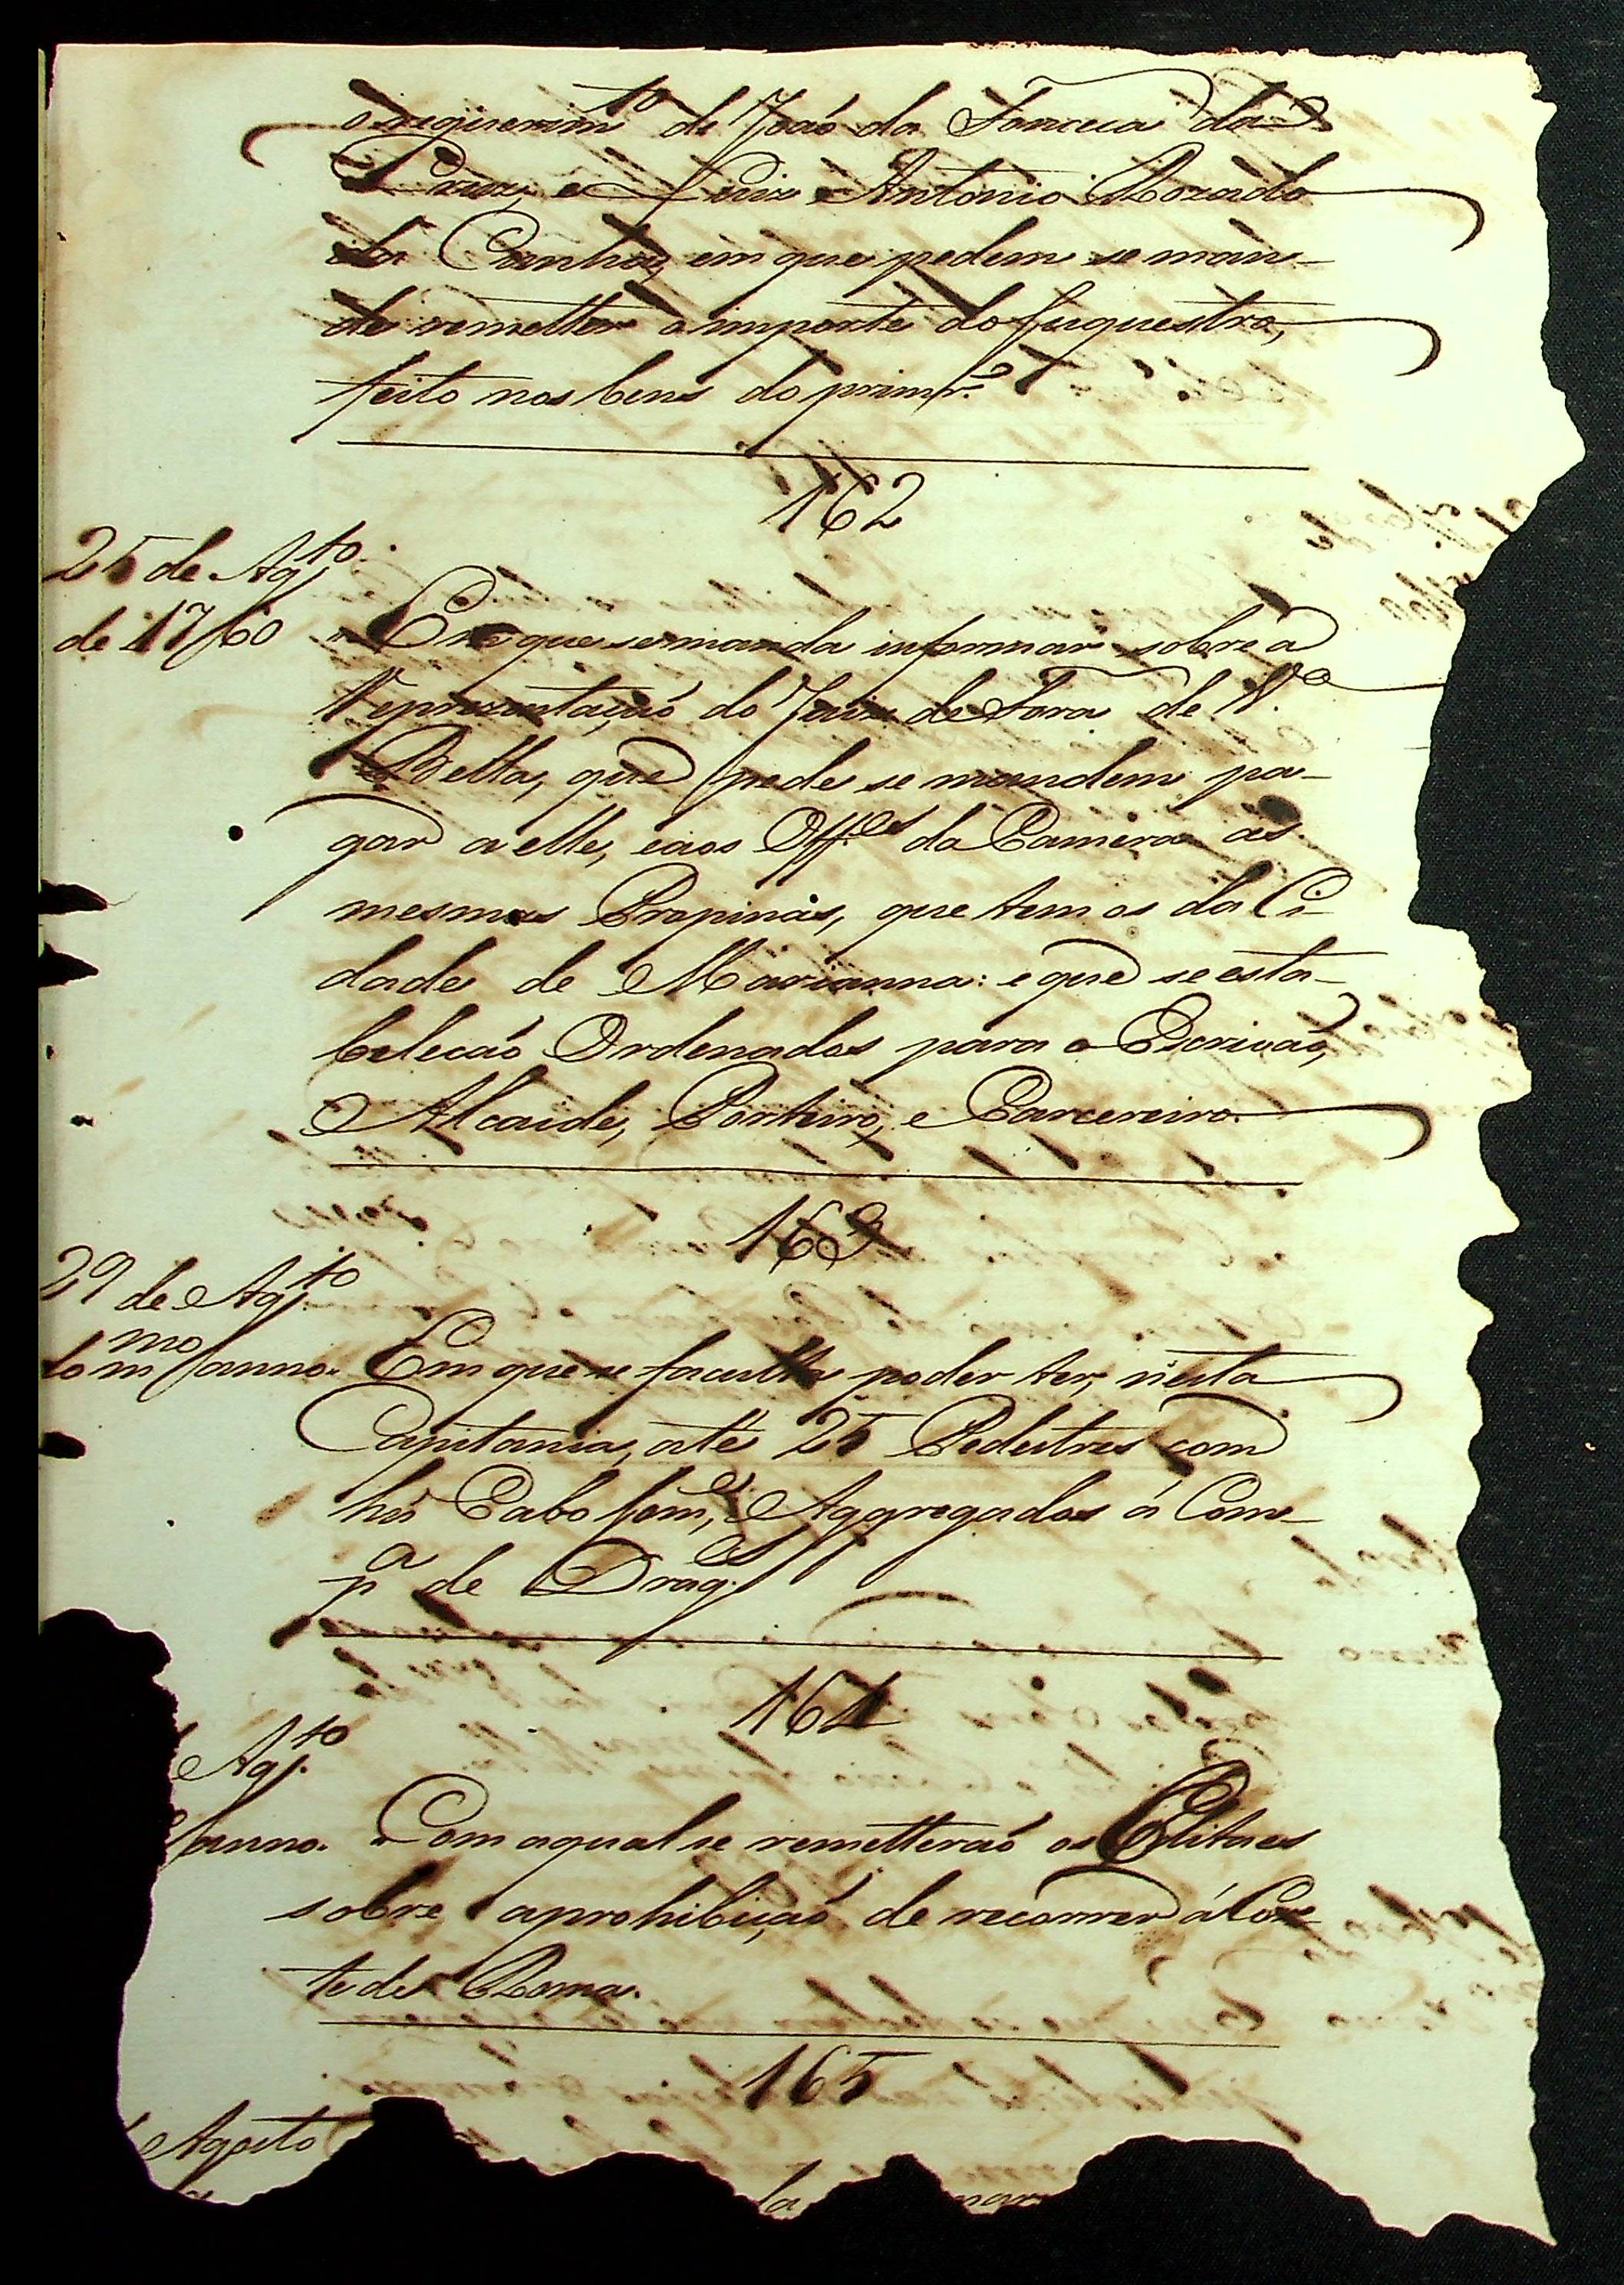 o requerim.to de Joaó da Fonceca da
Cruz, e Luiz Antonio Rozado
da Cunha, em que pedem se man-
de remetter o importe do suquestro,
feito nos bens do primr.o
162
25 de Ag.to
de 1760
Em que se manda informar sobre a
Reprezentaçaó do Juiz de Fora de V.a
Bella, que pede se mandem pa-
gar a elle, e aos Off.es da Camera as
mesmas Propinas, que tem os da Ci-
dade de Marianna: e que se esta-
beleçaó Ordenados para o Escrivaó,
Alcaide, Porteiro, e Carcereiro.
163
29 de Ag.to
do m.mo anno.
Em que se faculta poder ter, nésta
Capitania, até 25 Pedestres com
hũ Cabo som.e, Aggregados á Com-
p.a de Drag.es
164
de Ag.to
anno.
Com a qual se remetteraó os Editaes
sobre a prohibiçaó de recorrer á Cor-
te de Roma.
165
de Agosto